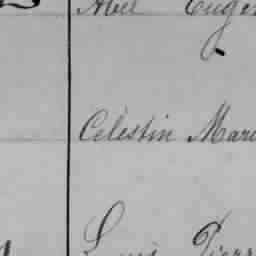 Abel Eugen
Célestin Mari
Louis Pierr